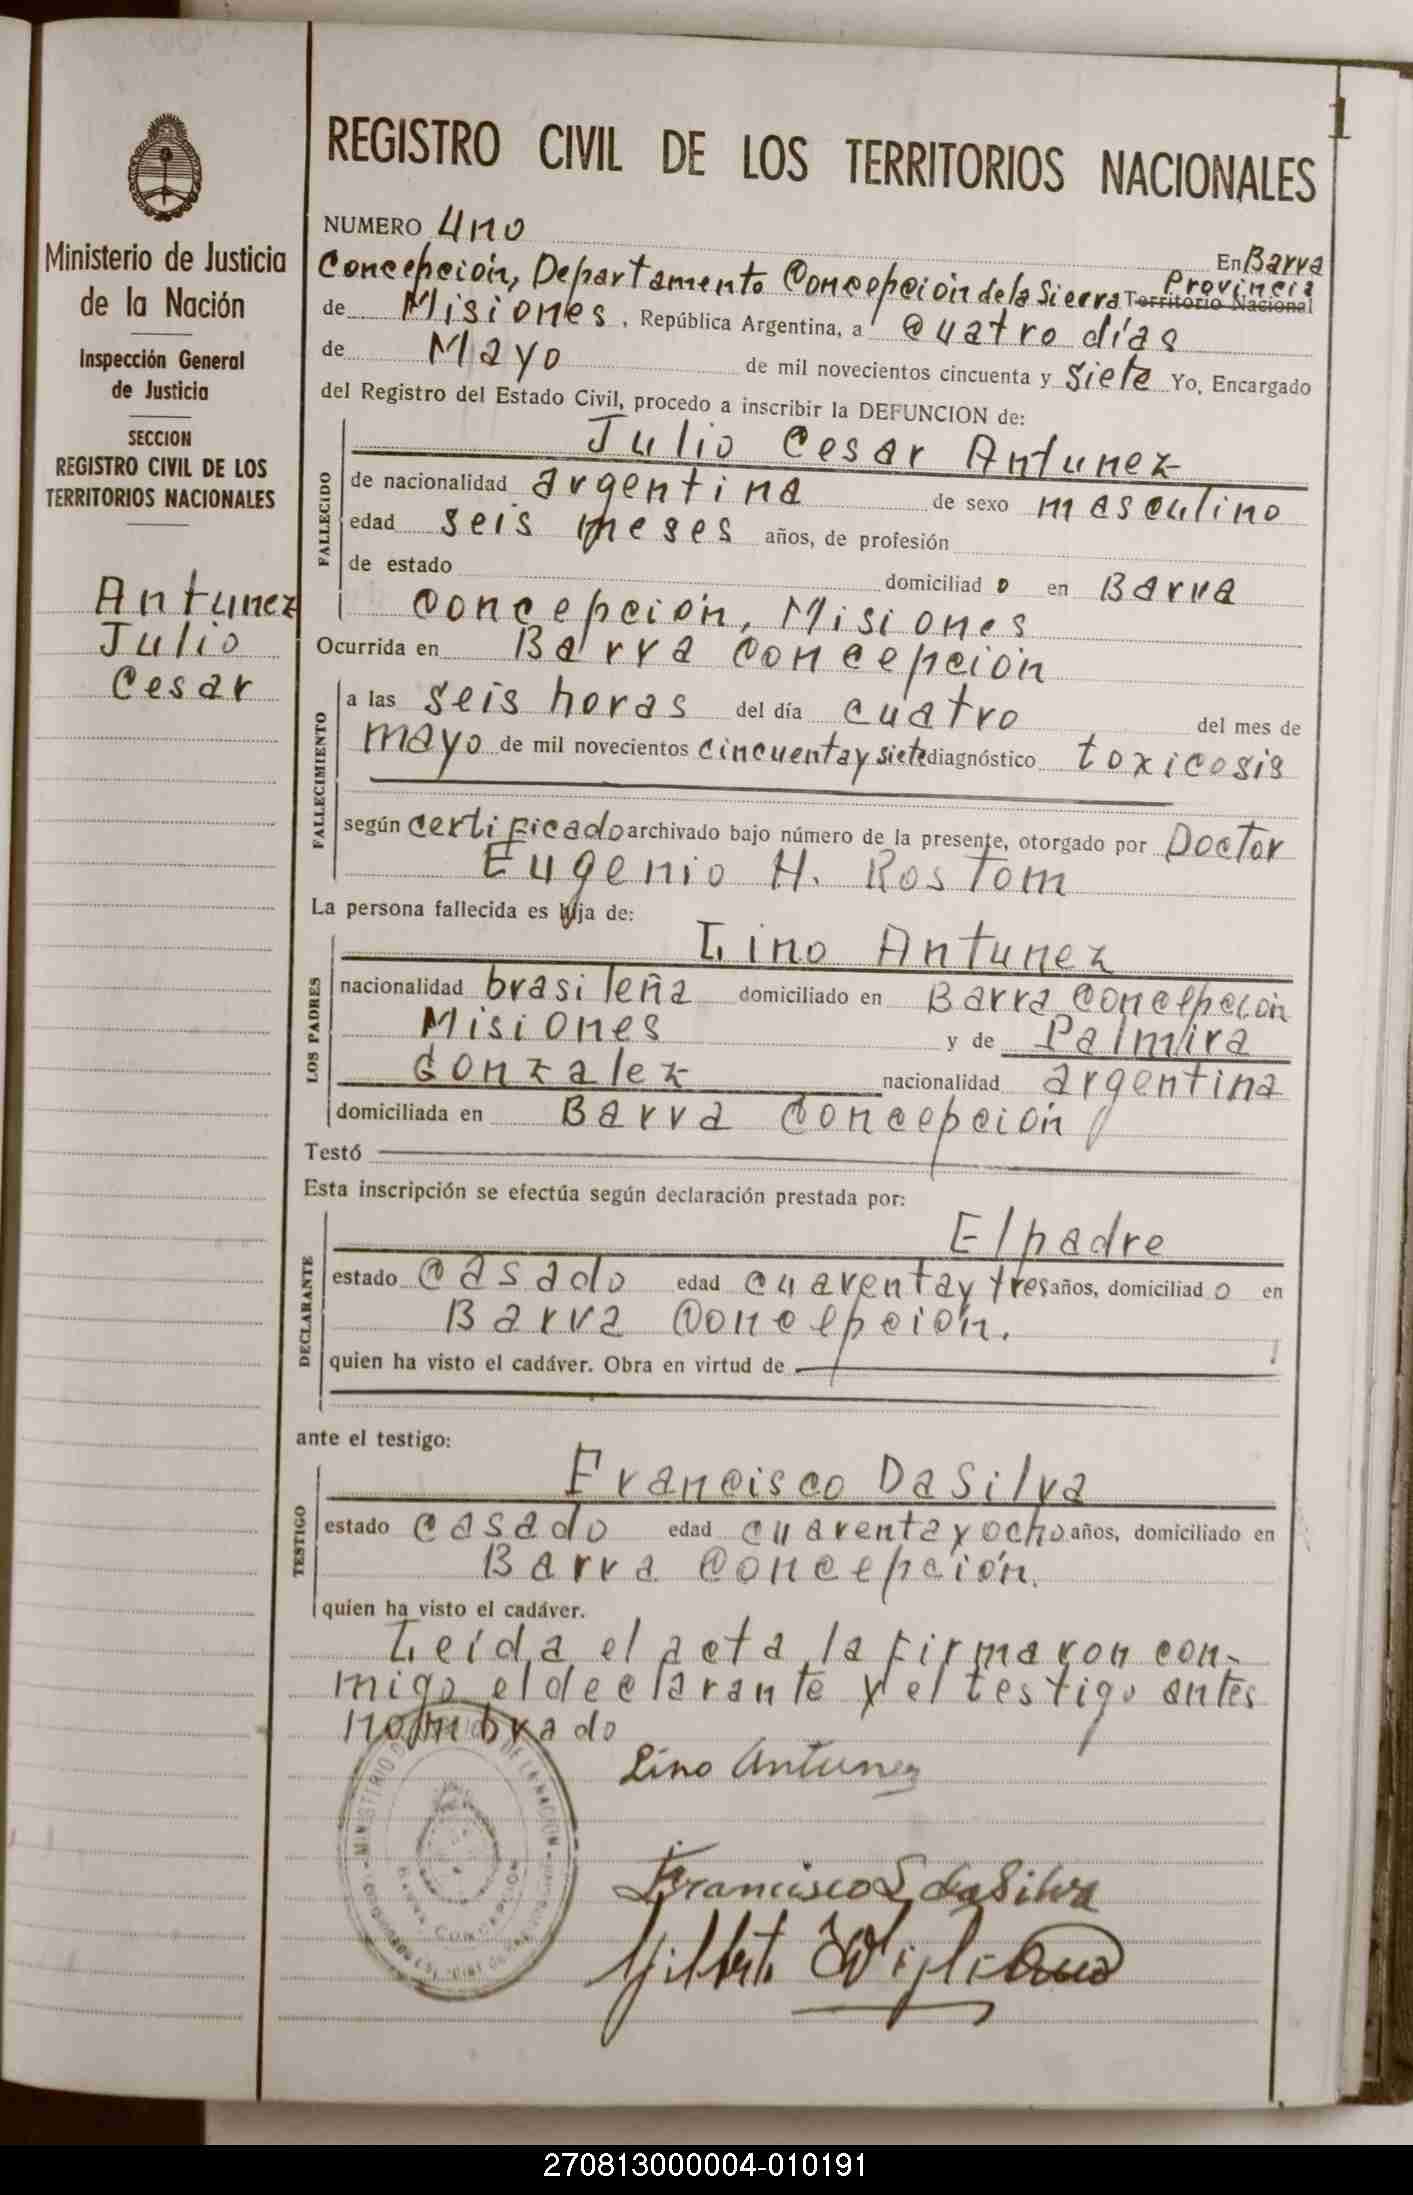 1
REGISTRO CIVIL DE LOS TERRITORIOS NACIONALES
Ministerio de Justicia
de la Nación
Inspección General
de Justicia
SECCION
REGISTRO CIVIL DE LOS
TERRITORIOS NACIONALES
Antunez
Julio
Cesar
NUMERO Uno En Barra
Concepción, Departamento Concepción de la Sierra Territorio Nacional Provincia
de Misiones, República Argentina, a Cuatro días
de Mayo de mil novecientos cincuenta y siete Yo, Encargado
del Registro del Estado Civil, procedo a inscribir la DEFUNCION de:
FALLECIDO
Julio Cesar Antunez
de nacionalidad argentina de sexo masculino
edad seis meses años, de profesión
de estado domiciliado en Barra
Concepción, Misiones
Ocurrida en Barra Concepción
FALLECIMIENTO
a las seis horas del día cuatro del mes de
mayo de mil novecientos cincuenta y siete diagnóstico toxicosis
según certificado archivado bajo número de la presente, otorgado por Doctor
Eugenio H. Rostom
La persona fallecida es hija de:
LOS PADRES
Lino Antunez
nacionalidad brasileña domiciliado en Barra Concepción
Misiones y de Palmira
Gonzalez nacionalidad argentina
domiciliada en Barra Concepción
Testó
Esta inscripción se efectúa según declaración prestada por:
DECLARANTE
El padre
estado casado edad cuarenta y tres años, domiciliado en
Barra Concepción.
quien ha visto el cadáver. Obra en virtud de
ante el testigo:
TESTIGO
Francisco DaSilva
estado casado edad cuarenta y ocho años, domiciliado en
Barra Concepción.
quien ha visto el cadáver.
Leída el acta, la firmaron con-
migo el declarante y el testigo antes
nombrado
Lino Antunez
Francisco S. da Silva
BARRA CONCEPCION
270813000004-010191